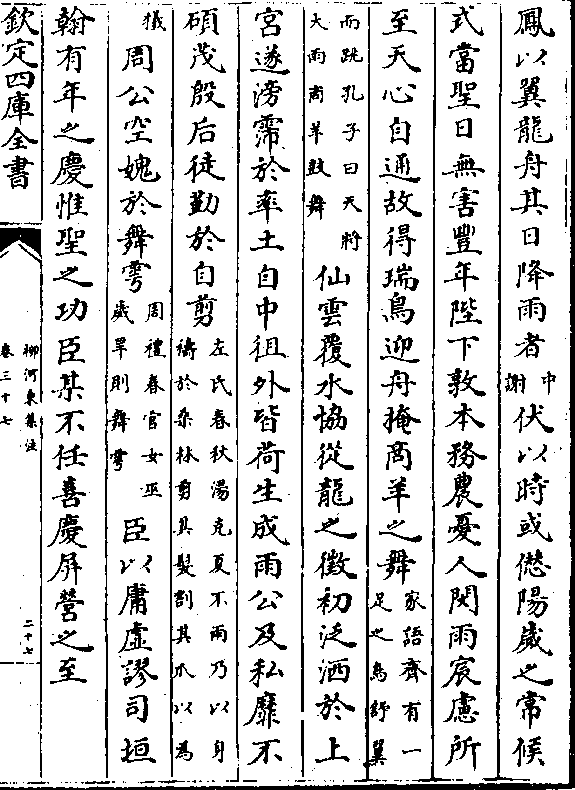 鳳以翼龍舟其日降雨者中謝伏以時或愆陽歲之常候
式當聖日無害豐年陛下敦本務農憂人閔雨宸慮所
至天心自通故得瑞鳥迎舟掩商羊之舞家語齊有一足之鳥舒翼
而跳孔子曰天將大雨商羊鼓舞仙雲覆水協從龍之徵初泛洒於上
宮遂滂霈於率土自中徂外皆荷生成雨公及私靡不
碩茂殷后徒勤於自剪左氏春秋湯克夏不雨乃以身禱於桑林剪其髮割其爪以為
犧周公空媿於舞雩周禮春官女巫歲旱則舞雩臣以庸虛謬司垣
翰有年之慶惟聖之功臣某不任喜慶屏營之至
欽定四庫全書
柳河東集注
卷三十七
二十七